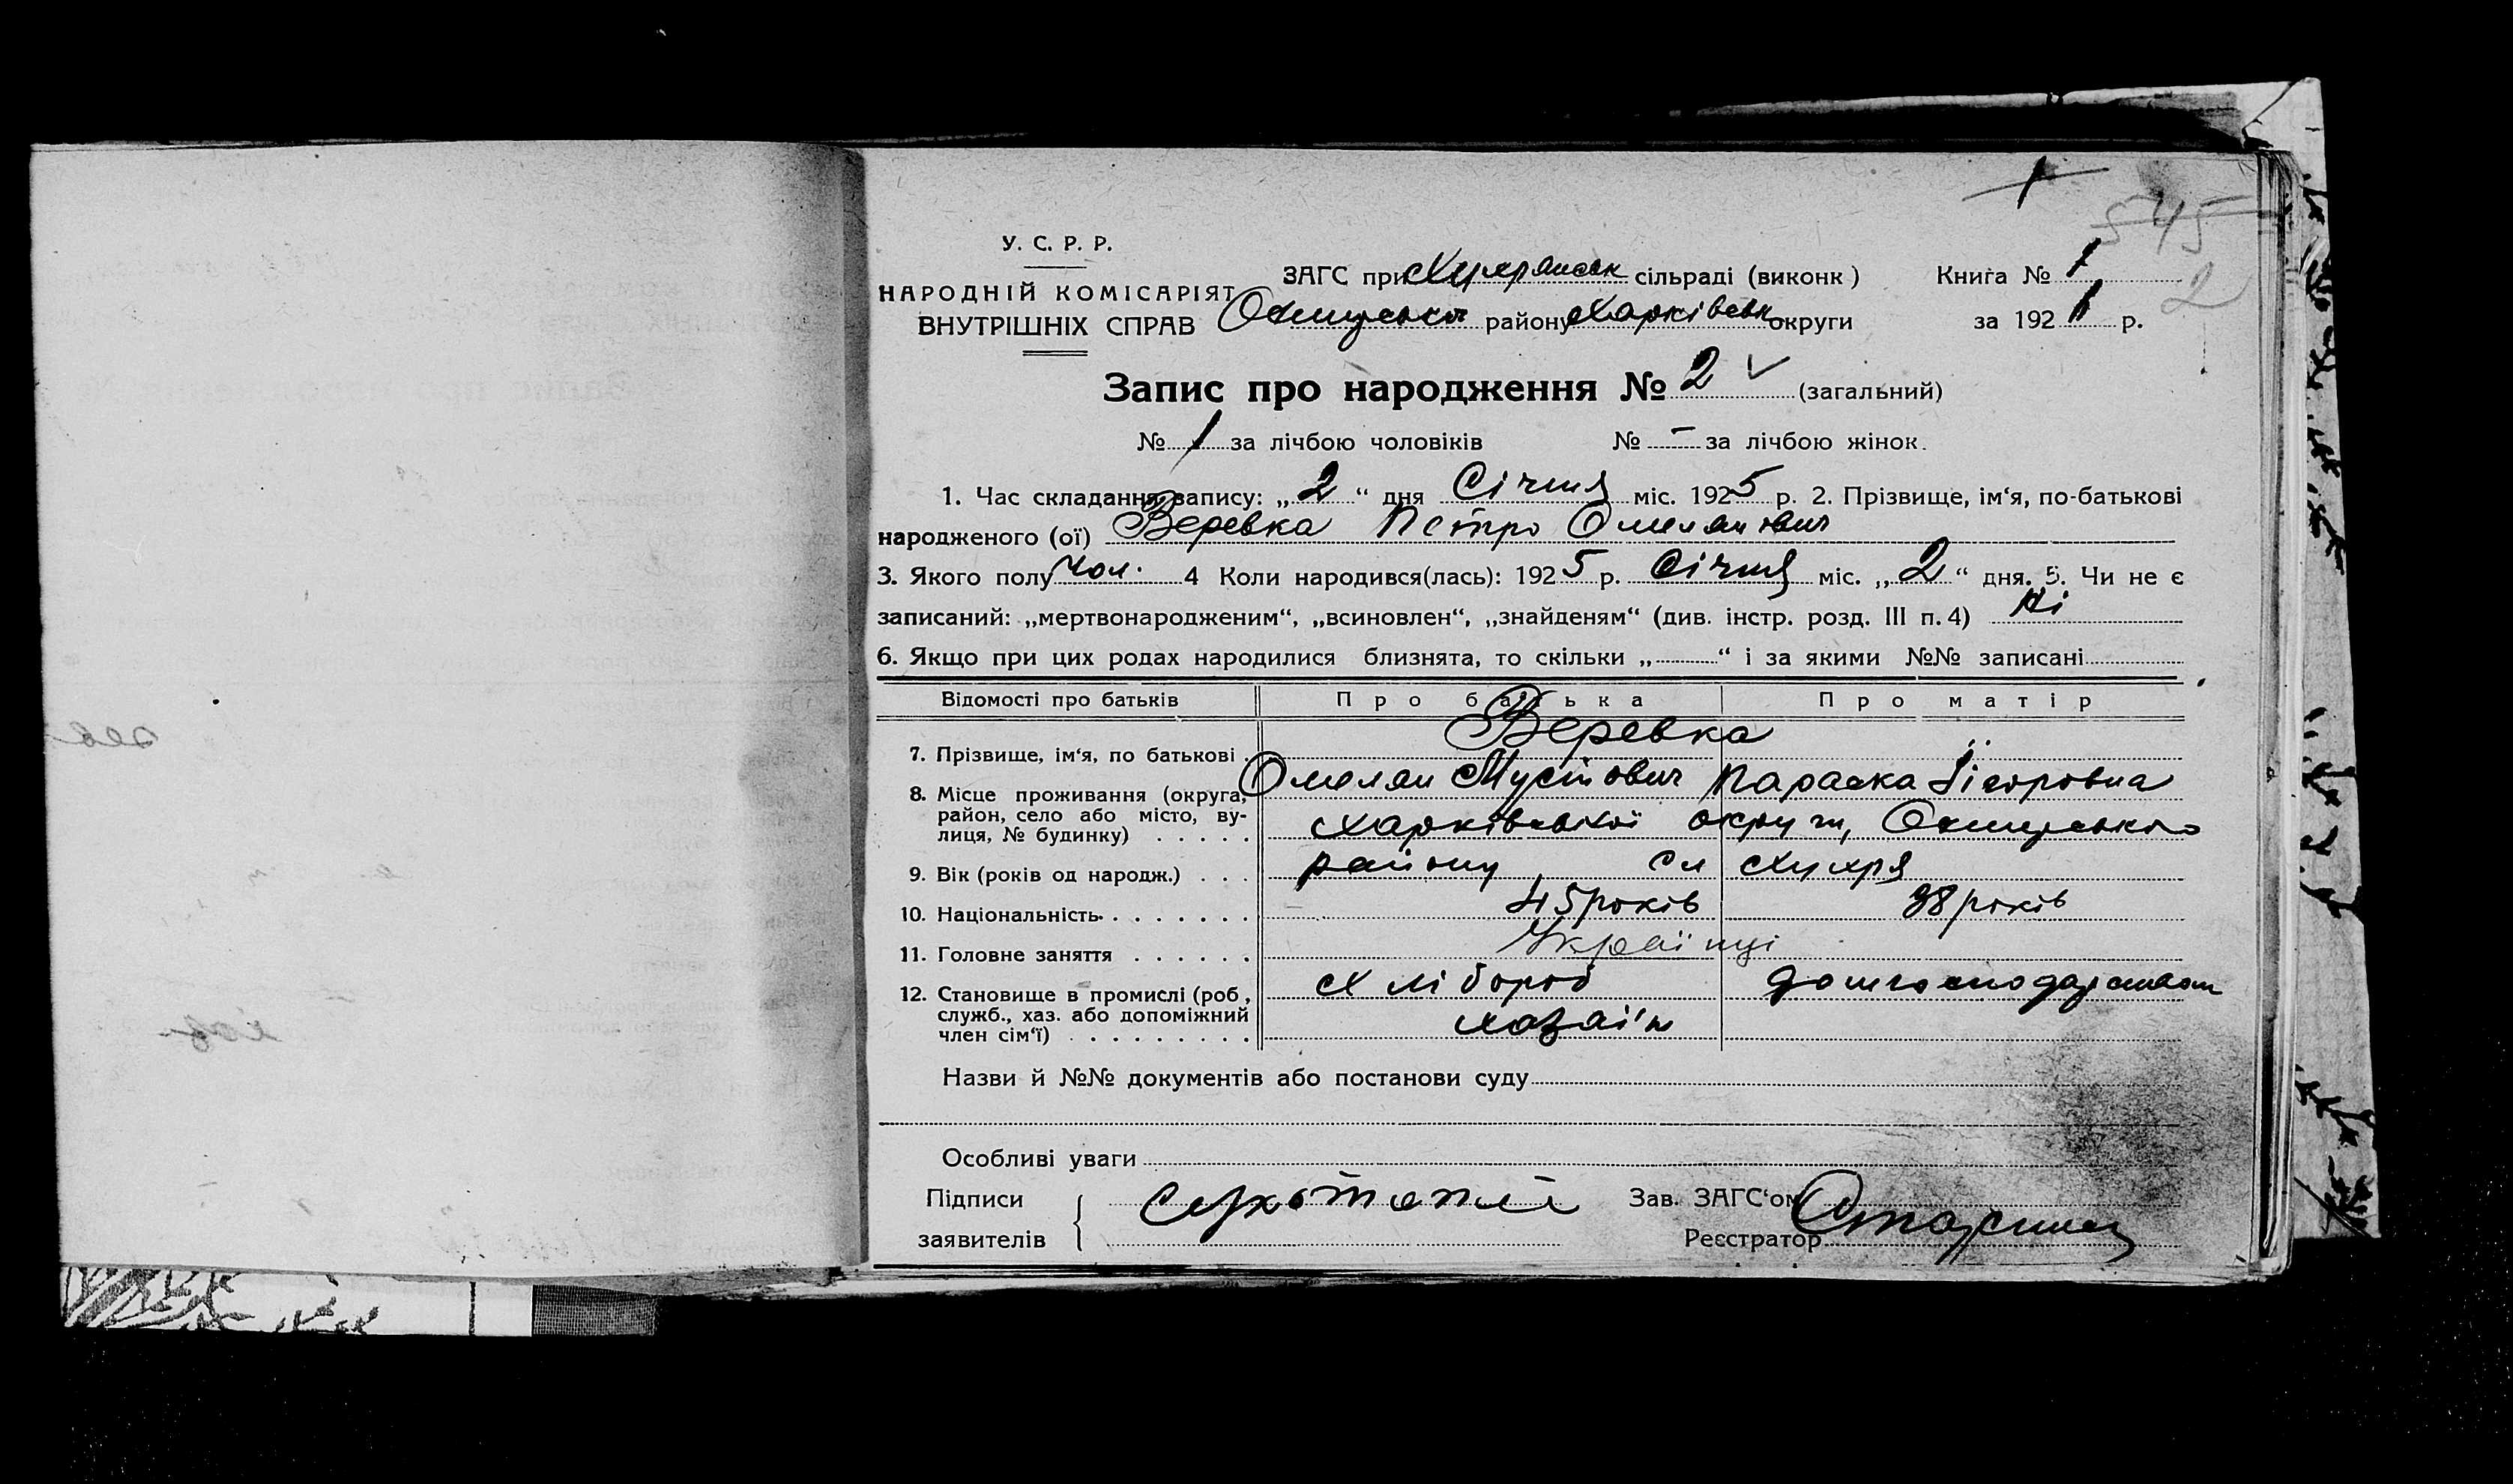 1
545
2
У. С. Р. Р.
НАРОДНІЙ КОМІСАРІЯТ
ВНУТРІШНІХ СПРАВ
ЗАГС при Хухрянськ сільраді (виконк) Книга № 1
району Харківськ округи за 192 р.
Запис про народження № 2 (загальний)
№ 1 за лічбою чоловіків № – за лічбою жінок.
1. Час складання запису: „2“ дня Січня міс. 1925 р. 2. Прізвище, ім‘я, по-батькові
народженого (ої) Веревка Петро Омелянович
3. Якого полу чол. 4 Коли народився(лась): 1925 р. Січня міс. „2“ дня. 5. Чи не є
записаний: „мертвонародженим“, „всиновлен“, „знайденям“ (див. інстр. розд. III п. 4) Ні
6. Якщо при цих родах народилися близнята, то скільки „ “ і за якими №№ записані
Відомості про батьків Про батька Про матір
Веревка
7. Прізвище, ім‘я, по батькові
Омелян Мусійович Параска
8. Місце проживання (округа, район, село або місто, ву-
лиця, № будинку)
Харківської округи, Охтирського
району сл Хухря
9. Вік (років од народж.)
45 років 38 років
10. Національність
Українці
11. Головне заняття
Хлібороб
12. Становище в промислі (роб., служб., хаз. або допоміжний
член сім‘ї)
хазяїн
Назви й №№ документів або постанови суду
Особливі уваги
Підписи
заявителів
Зав. ЗАГС‘ом
Реєстратор